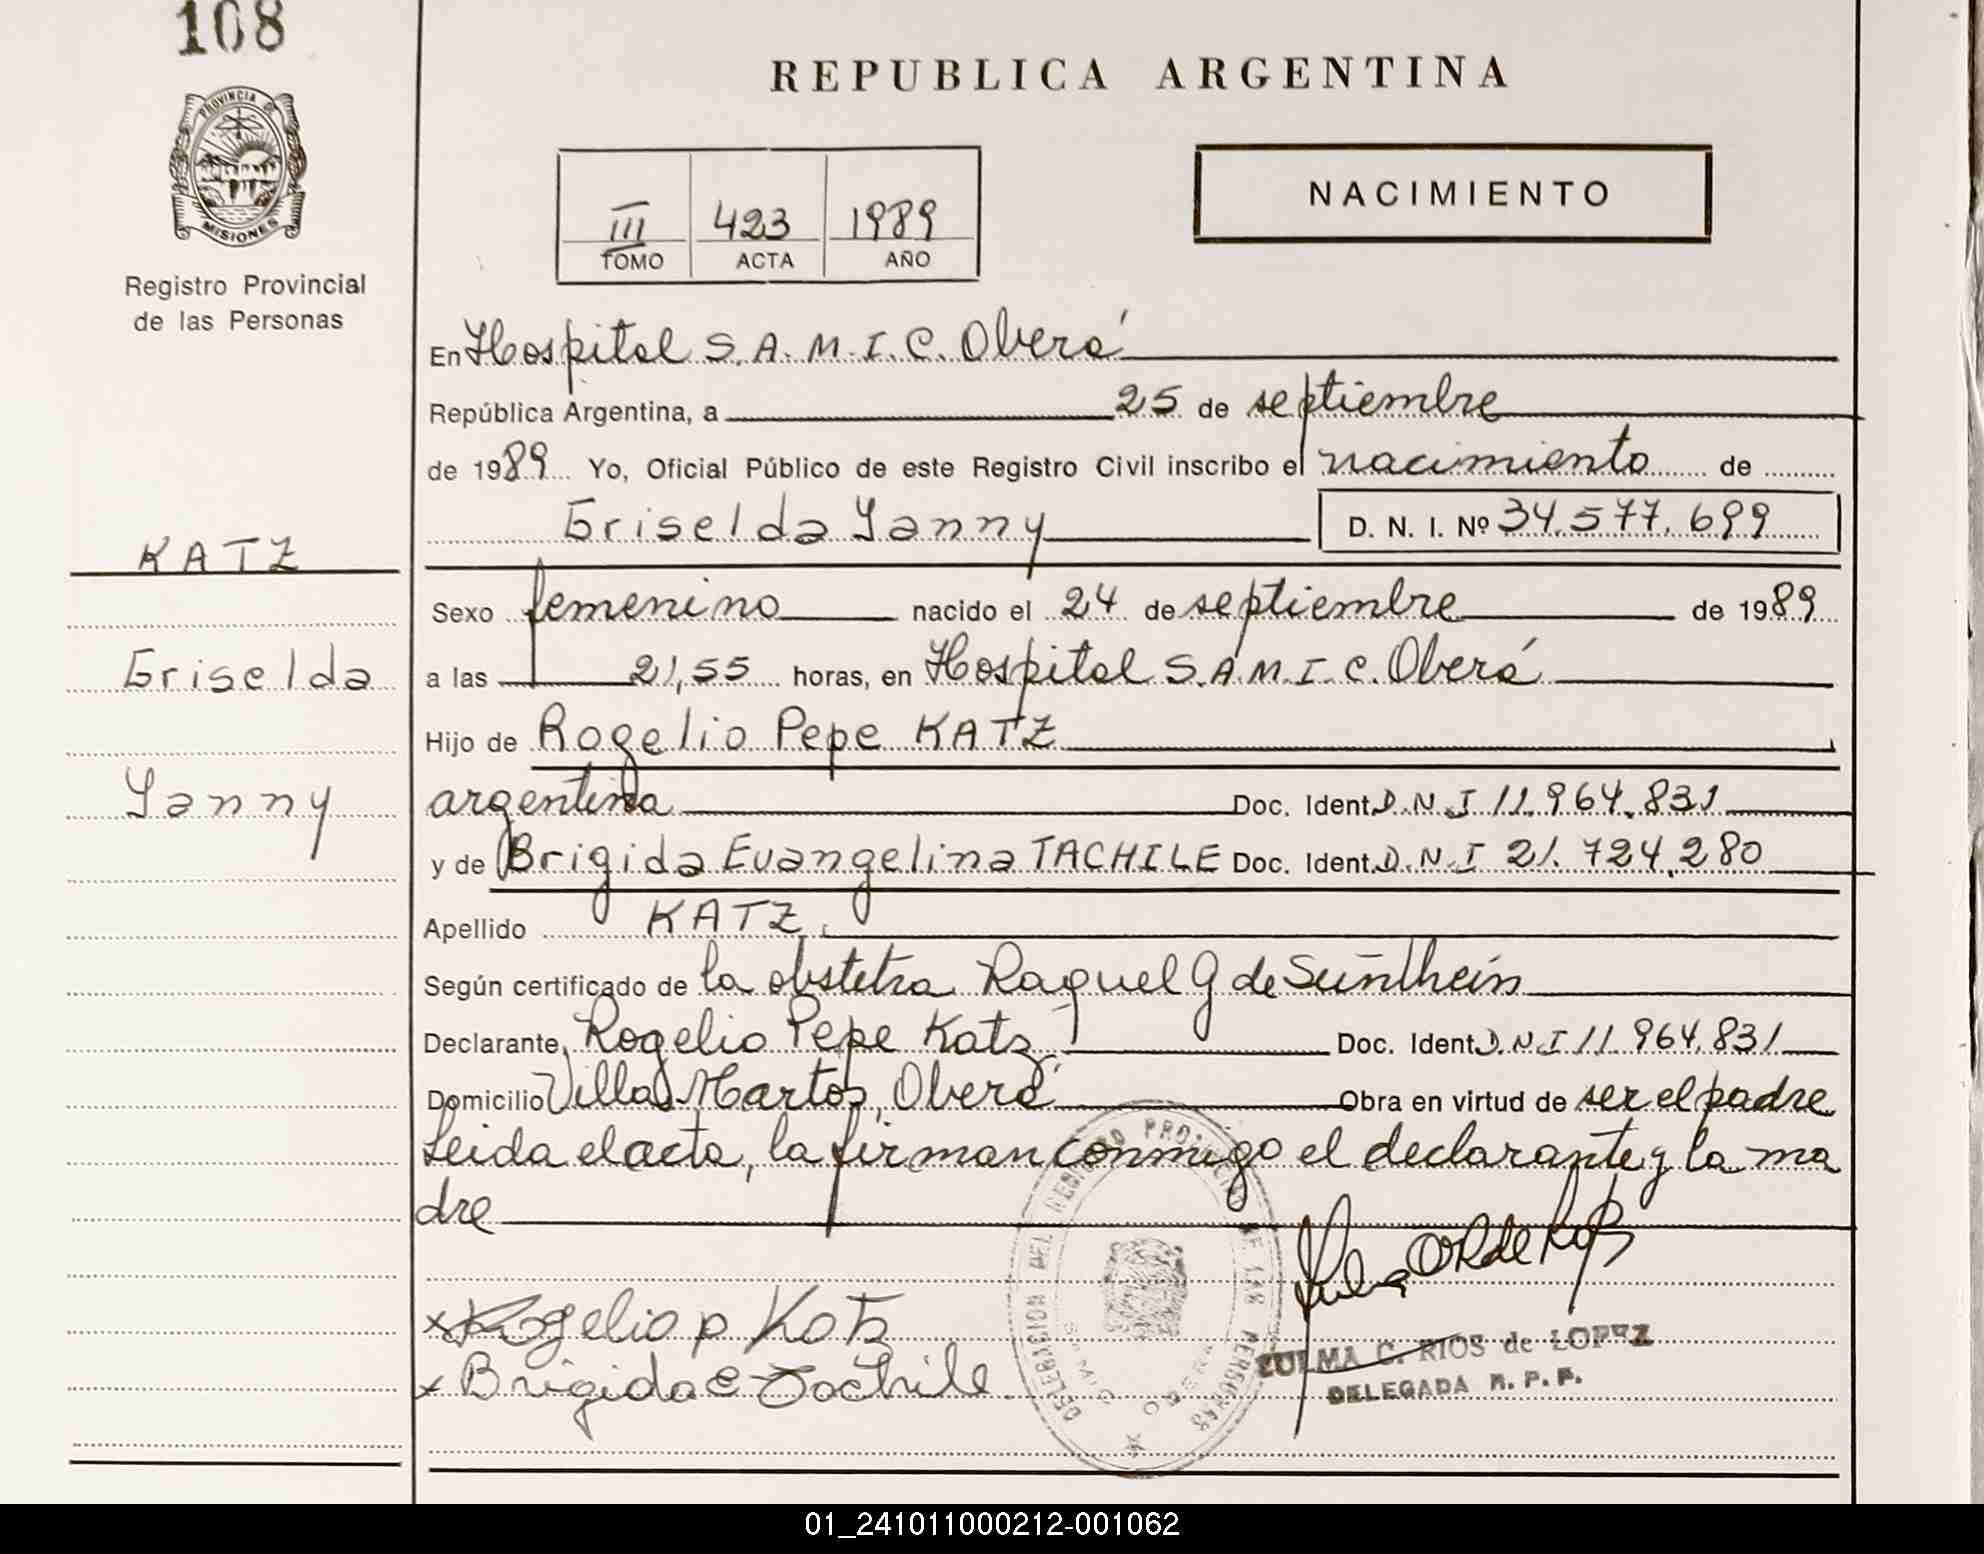 108
PROVINCIA DE
MISIONES
Registro Provincial
de las Personas
KATZ
Griselda
Yanny
REPUBLICA ARGENTINA
III 423 1989
TOMO ACTA AÑO
NACIMIENTO
En Hospital S.A.M.I.C. Oberá
República Argentina, a 25 de septiembre
de 1989 Yo, Oficial Público de este Registro Civil inscribo el nacimiento de
Griselda Yanny D. N. I. Nº 34.577.699
Sexo femenino nacido el 24 de septiembre de 1989
a las 21,55 horas, en Hospital S.A.M.I.C. Oberá
Hijo de Rogelio Pepe KATZ
argentina Doc. Ident. D.N.I 11.964.831
y de Brigida Evangelina TACHILE Doc. Ident. D.N.I 21.724.280
Apellido KATZ
Según certificado de la obstetra Raquel G de
Declarante, Rogelio Pepe Katz Doc. Ident. D.N.I 11.964.831
Domicilio Villa Martos, Oberá Obra en virtud de ser el padre
Leida el acta, la firman conmigo el declarante y la ma
dre
DELEGACION DEL REGISTRO PROVINCIAL DE LAS PERSONAS
Rogelio p Katz
Brigida e Tachile
ZULMA C. RIOS de LOPEZ
DELEGADA R. P. P.
01_241011000212-001062